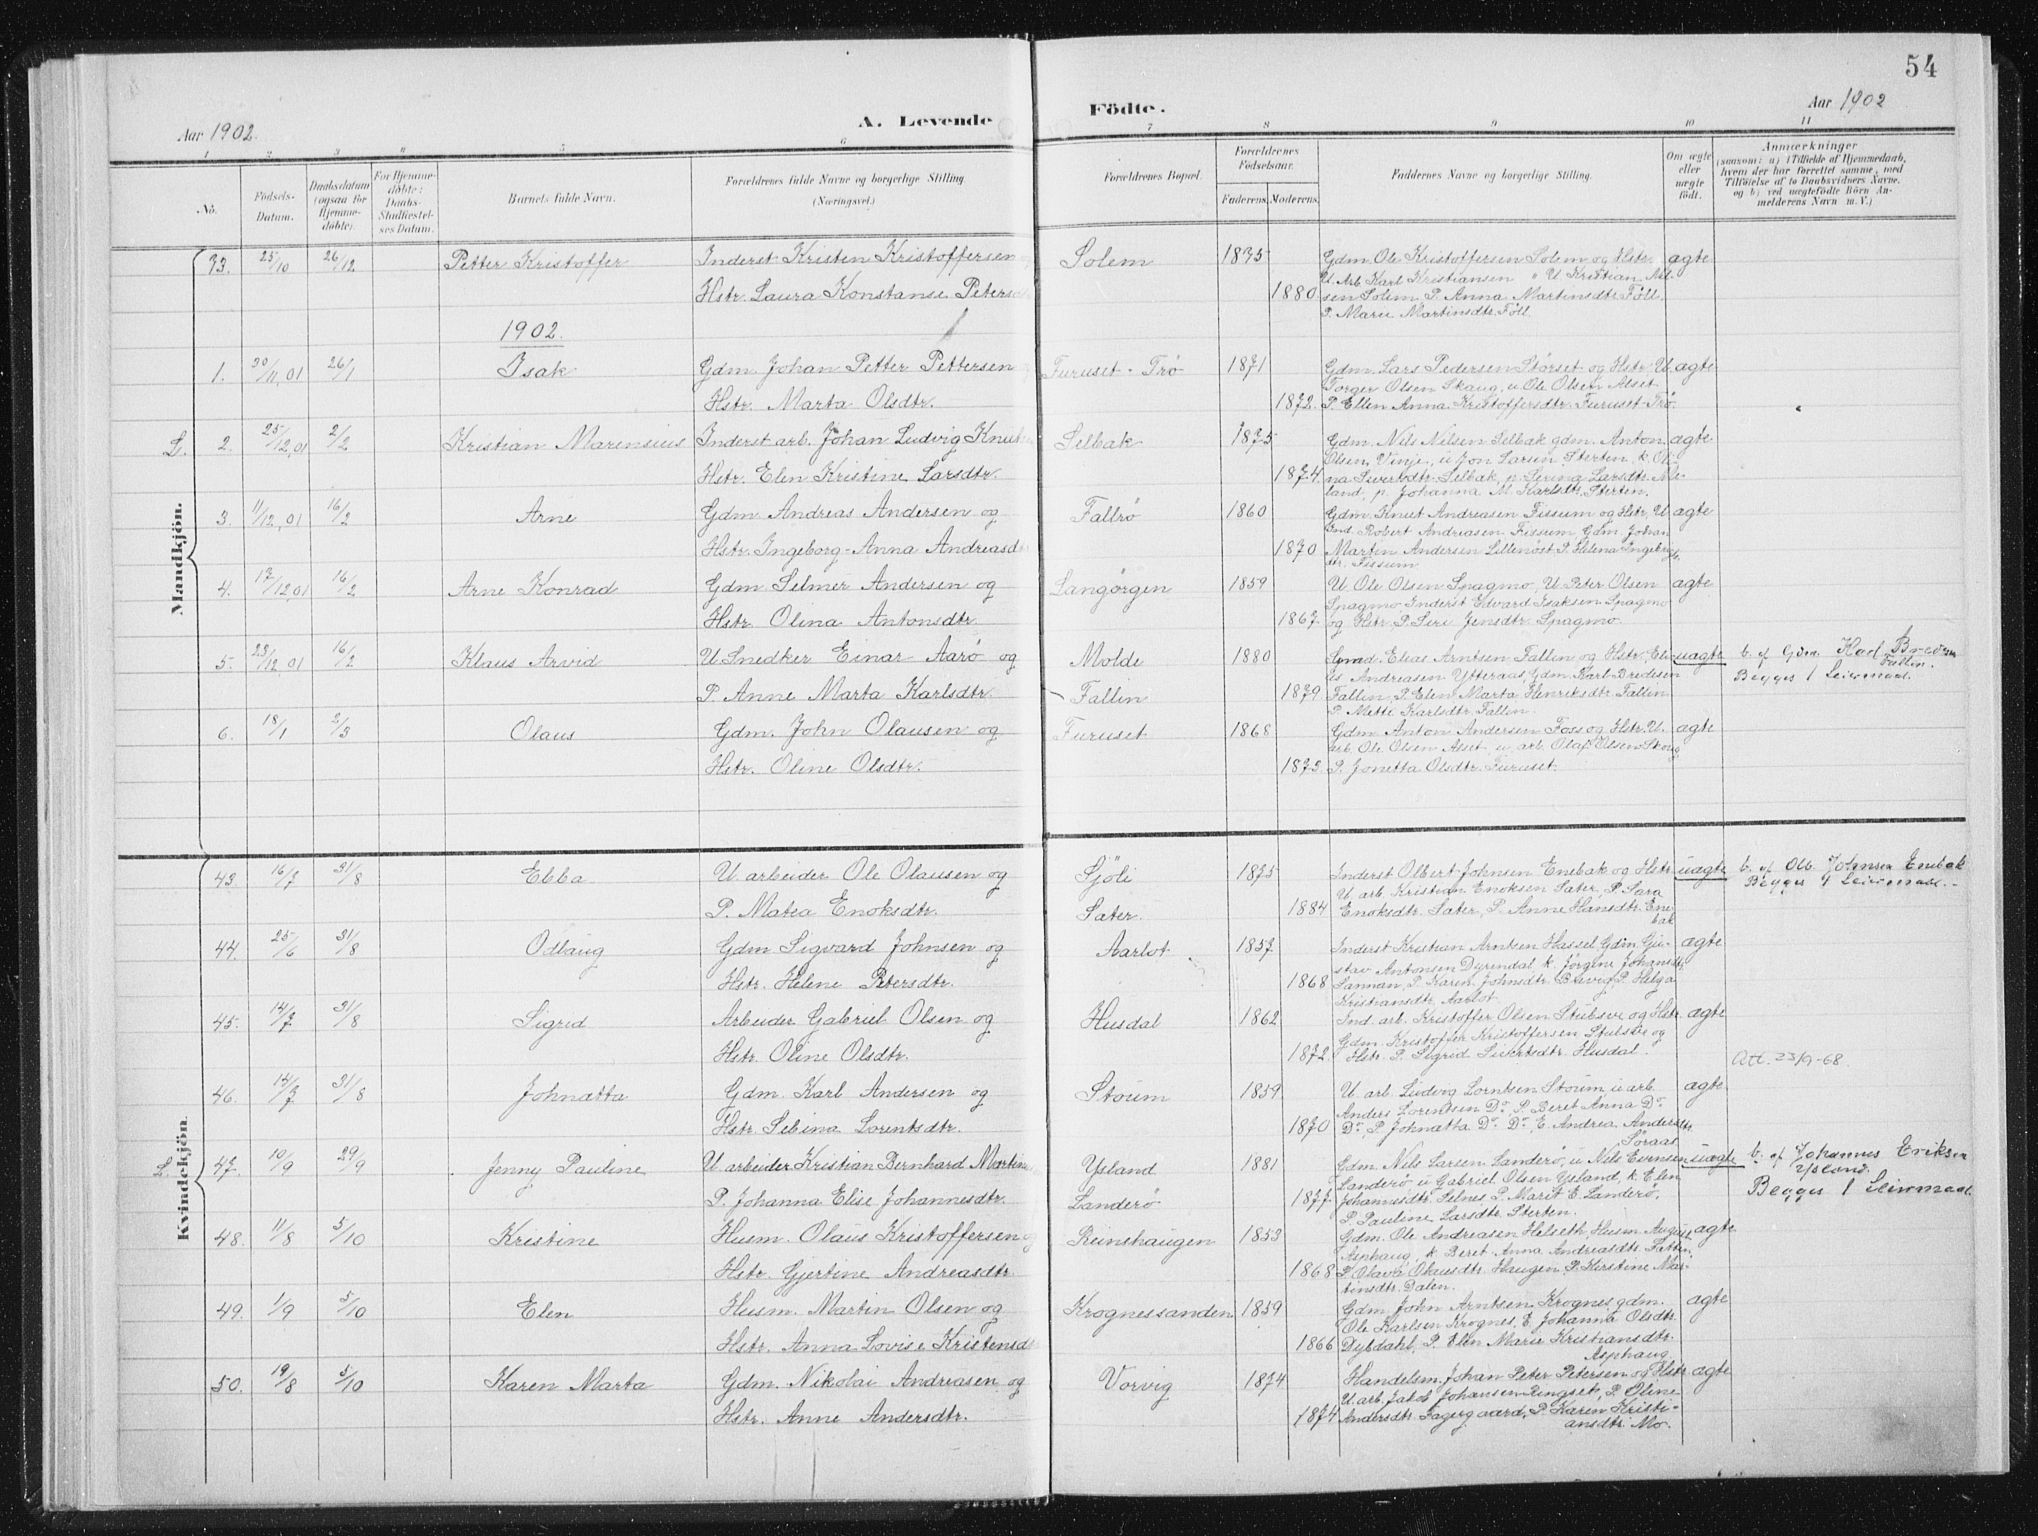 54
Aar 1902.
A. Levende
Födte.
Aar 1902
1 2 3 4 5 6 7 8 9 10 11
No.
Födsels-
Datum.
Daabsdatum
(ogsaa for
Hjemme-
döbte).
For Hjemme-
döbte:
Daabs-
Stadfæstel-
ses Datum.
Barnets fulde Navn.
Forældrenes fulde Navne og borgerlige Stilling
(Næringsvei.)
Forældrenes Bopæl.
Forældrenes
Födselsaar.
Faderens. Moderens.
Faddernes Navne og borgerlige Stilling.
Om ægte
eller
uægte
födt.
Anmærkninger
(saasom: a) i Tilfælde af Hjemmedaab,
hvem der har forrettet samme, med
Tilföielse af to Daabsvidners Navne.
og b) ved uægtefödte Börn An-
melderens Navn m. V.)
Mandkjön.
73. 25/10 26/12 Petter Kristoffer Inderst Kristen Kristoffersen Solem 1875 Gdm. Ole Kristoffersen Solem og Hstr. agte
U. Arb. Karl Kristiansen " U. Kristian Nil-
Hstr. Laura Konstanse Peters 1880 sen Solem P. Anna Martinsdtr. Föll.
P. Marie Martinsdtr. Föll.
1902.
1. 30/11,01 26/1 Isak Gdm. Johan Petter Pettersen Furuset-Trø 1871 Gdm. Lars Pedersen Størset og Hstr. U. agte
Torger Olsen Skaug, u. Ole Olsen Alset
Hstr. Marta Olsdtr. 1872. P. Ellen Anna Kristoffersdtr. Furuset-Trø.
L. 2. 25/12,01 2/2 Kristian Marensius Inderst arb. Johan Ludvig Knut Selbak 1875 Gdm. Nils Nilsen Selbak gdm. Anton agte
Olsen Vinje, u Jon Larsen Sterten, k. Oli-
Hstr. Elen Kristine Larsdtr. 1874. na Sivertsdtr. Selbak, p. Serina Larsdtr. Me-
land, p. Johanna M. Karlsdtr. Sterten.
3. 11/12,01 16/2 Arne Gdm. Andreas Andersen og Faltrø 1860 Gdm. Knut Andreasen Fissum og Hstr. U. agte
Ind. Robert Andreasen Fissum Gdm. Johan
Hstr. Ingeborg-Anna Andreasd 1870 Martin Andersen Lillenöst P. Helena Ingebrigt
dtr. Fissum
4. 17/12,01 16/2 Arne Konrad Gdm. Selmer Andersen og Langörgen 1859 U. Ole Olsen Spagmo, U. Peter Olsen agte
Spagmo Inderst Edvard Isaksen Spagmo
Hstr. Olina Antonsdtr. 1867. og Hstr. P. Siri Jensdtr. Spagmo.
5. 23/12,01 16/2 Klaus Arvid U. Snedker Einar Aarø og Molde 1880 Gmd. Elias Arntsen Fallin og Hstr. uagte b. af Gdm. Karl Bredesen
Fallin.
Andreasen Ytteraas, Gdm. Karl Bredesen Begges 1 Leiermaal.
P. Anne Marta Karlsdtr. Fallin 1879 Fallin, P. Elen Marta Henriksdtr. Fallin
P. Metti Karlsdtr. Fallin.
6. 18/1 2/3 Olaus Gdm. John Olausen og Furuset 1868 Gdm. Anton Andersen Foss og Hstr. U. agte
arb. Ole Olsen Alset u. arb. Olaf Olsen Skoug
Hstr. Oline Olsdtr. 1872. P. Jonetta Olsdtr. Furuset.
Kvindekjön.
43. 16/7 31/8 Ebba U. arbeider Ole Olausen og Sjöli 1875 Inderst Olbert Johnsen Enebak og Hstr. uagte b. af Olb. Johnsen Enebak
U. arb. Kristian Enoksen Sater, P. Sara Begges 1 Leiermaal.
P. Matea Enoksdtr. Sater. 1884 Enoksdtr. Sater, P. Anne Hansdtr. Ene-
bak
44. 25/6 31/8 Odlaug Gdm Sigvard Johnsen og Aarlot 1857 Inderst Kristian Arntsen Hassel, Gdm. Gu- agte
stav Antonsen Dyrendal k. Jørgine Johansdtr.
Hstr. Helene Petersdtr. 1868 Sannan, P. Karen Johnsdtr. Bævig, P. Helga
Kristiansdtr. Aarlot
45. 14/7 31/8 Sigrid Arbeider Gabriel Olsen og Husdal 1862 Ind. arb. Kristoffer Olsen Stubsve og Hstr. agte
Gdm. Kristoffer Kristoffersen Stubsve og
Hstr. Oline Olsdtr. 1872 Hstr. P. Sigrid Sivertsdtr. Husdal. Att. 23/9-68.
46. 14/7 31/8 Johnatta Gdm. Karl Andersen og Stöum 1859 U. arb. Ludvig Lorntsen Stöum, u arb. agte
Anders Lorentsen Do. P. Beret Anna Do
Hstr. Sebina Lorentsdtr. 1870 Do, P. Johnatta Do. Do, E. Andrea Andersdtr.
Soraas
L. 47. 10/9 29/9 Jenny Pauline U arbeider Kristian Bernhard Martin Ysland 1881 Gdm. Nils Larsen Landerö, u Nils Evensen uægte b. af Johannes Eriksen
Ysland.
Landerö u Gabriel Olsen Ysland, k. Elen
P. Johanna Elise Johannesdtr. Landerö 1877 Johannesdtr. Selnes P. Marit E. Landerö, Begges 1 Leiermaal
P. Pauline Larsdtr. Sterten.
48. 11/8 5/10 Kristine Husm. Olaus Kristoffersen og Reinshaugen 1853 Gdm. Ole Andreasen Helseth Husm. August agte
Asphaug, k. Beret Anna Andreasdtr.
Hstr. Gjertine Andreasdtr. 1868 P. Olava Olausdtr. Haugen P. Kirstine Mar-
tinsdtr. Dalen.
49. 1/9 5/10 Elen Husm. Martin Olsen og Krognessanden 1859 Gdm. John Arntsen Krognes, gdm. agte
Ole Karlsen Krognes, E Johanna Olsdtr.
Hstr. Anna Lovise Kristensd 1866 Dybdahl, P. Elen Marie Kristiansdtr.
Asphaug
50. 19/8 5/10 Karen Marta Gdm. Nikolai Andreasen og Vorvig 1874 Handelsm. Johan Peter Petersen og Hstr. agte
U. arb. Jakob Johansen Ringset, P. Oline
Hstr. Anne Andersdtr. 1874 Andersdtr. Fagergaard, P. Karen Kristi-
ansdtr. Mo.